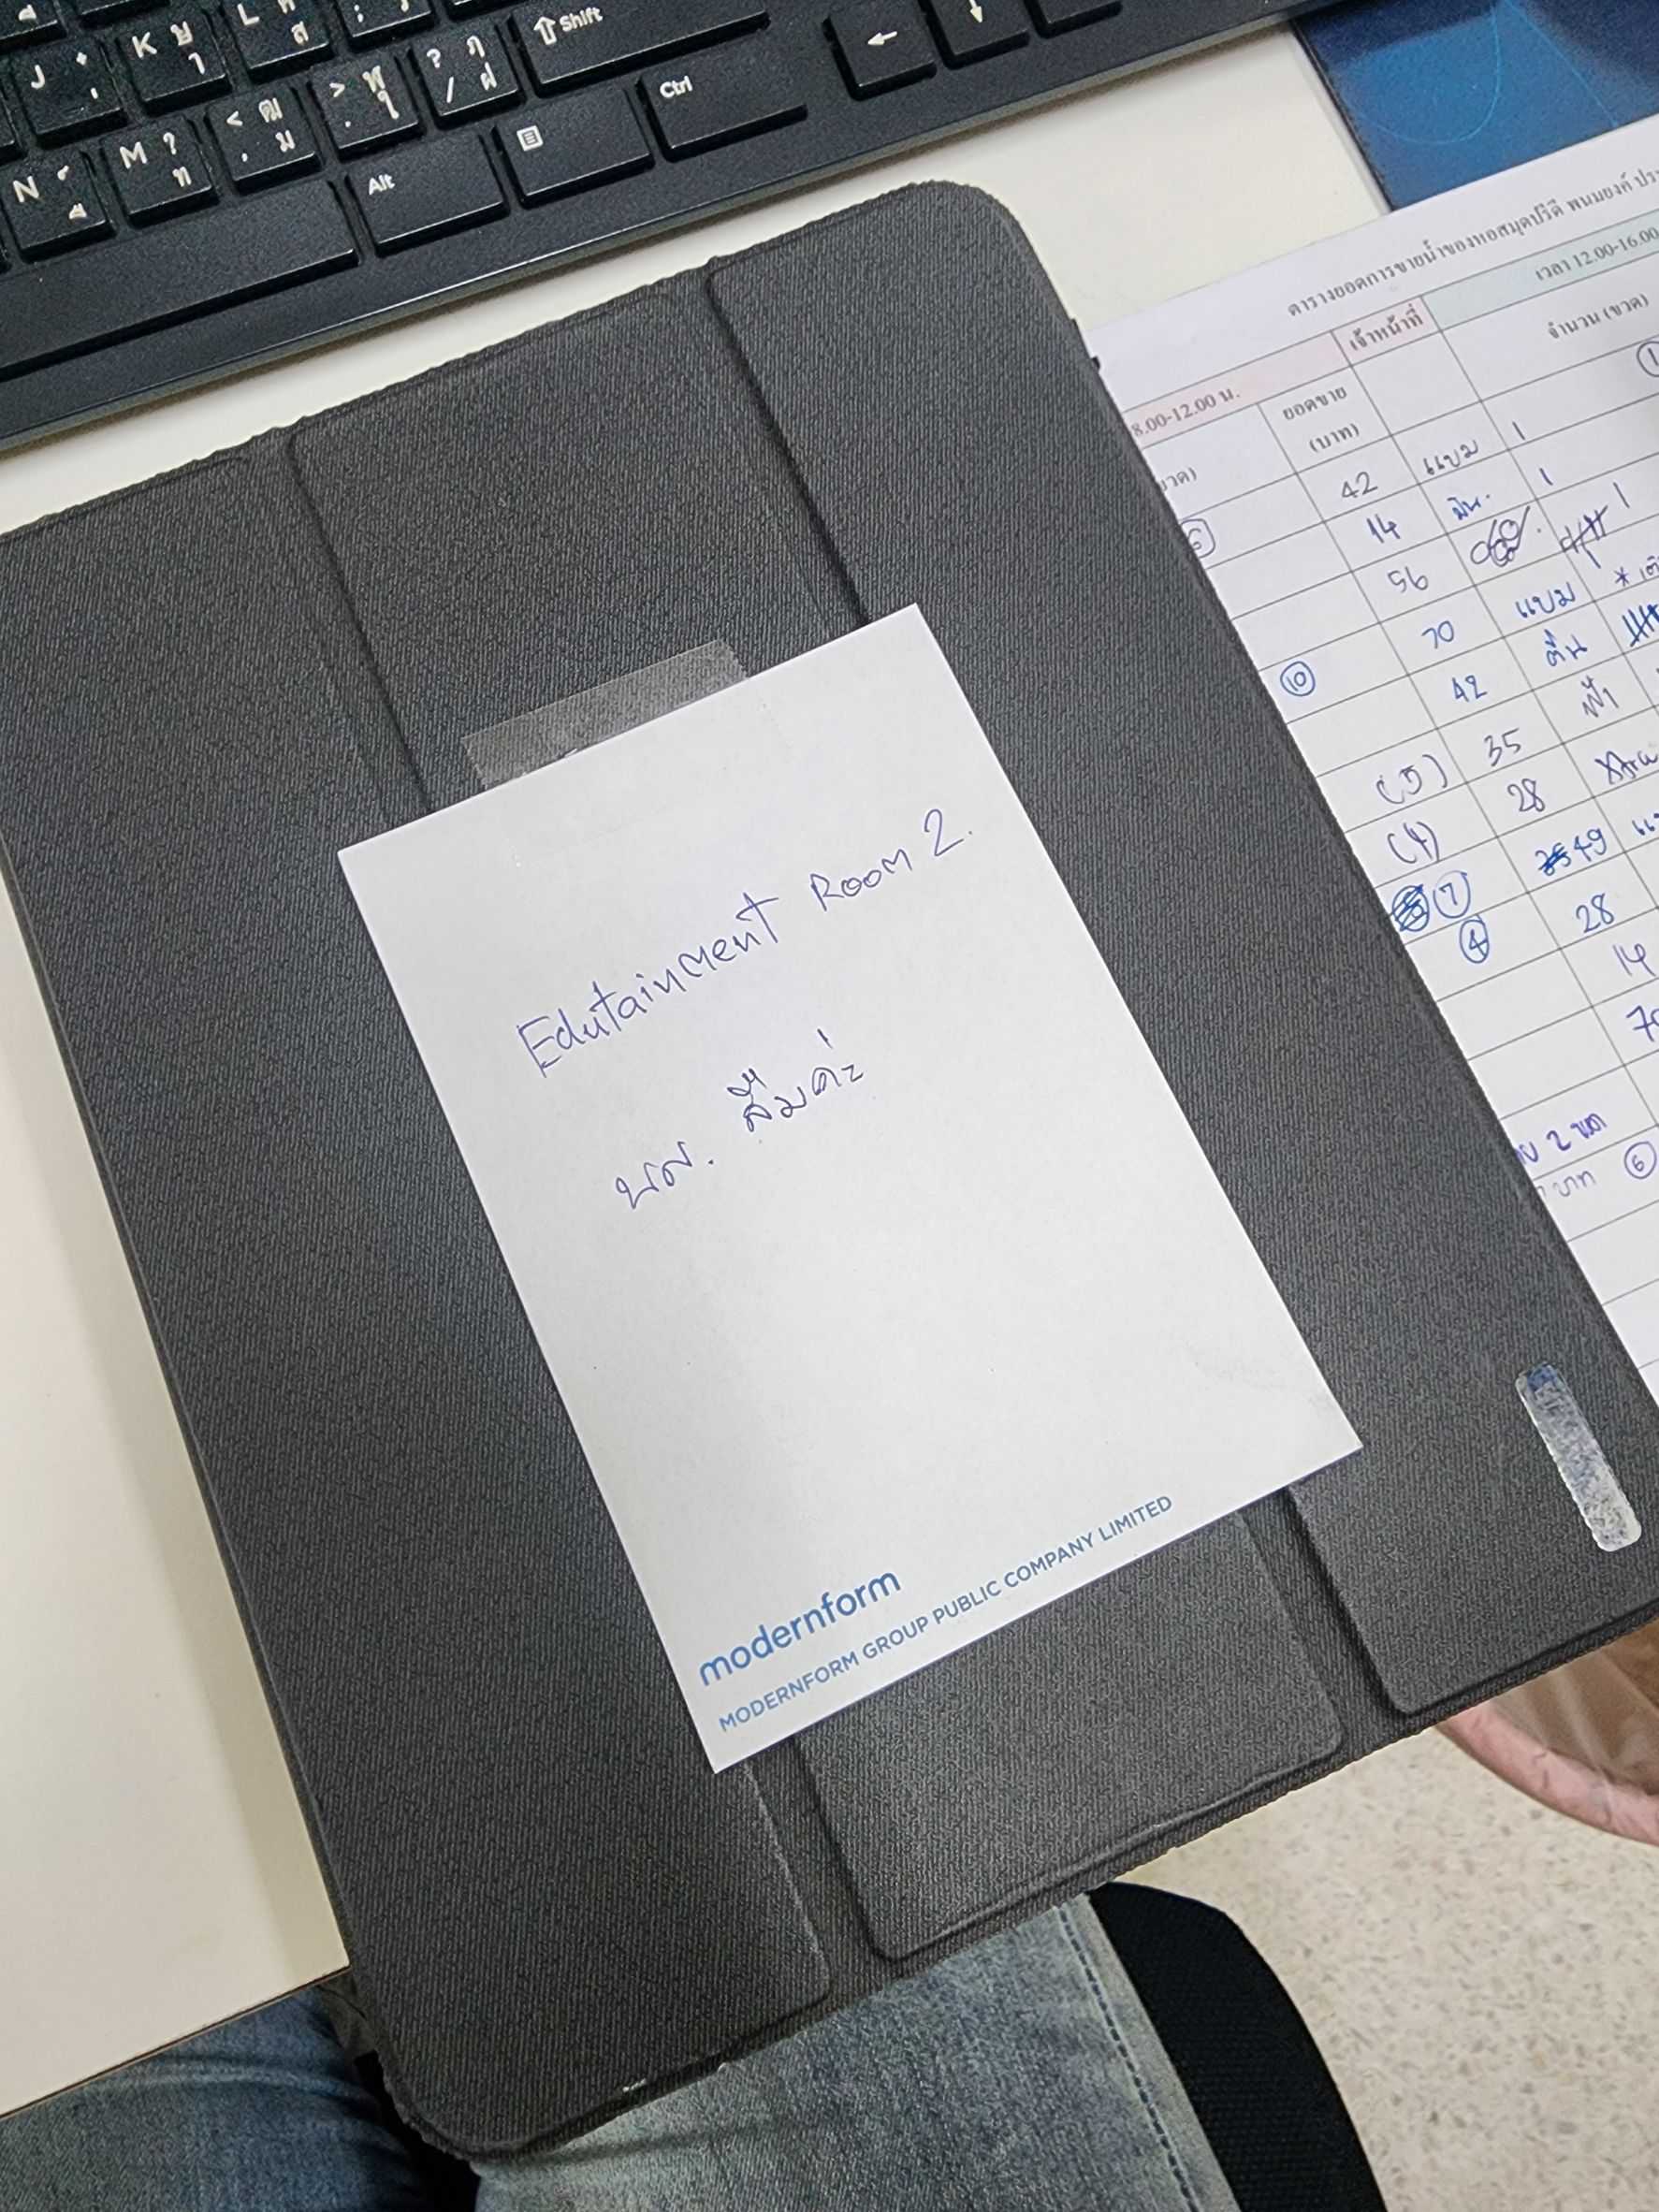 J
K ย า
L
ส
Shift
N
M ? ท
< ฒ , ม
> ฬ . ใ
? ฦ / ฝ
Ctrl
Alt
ตารางยอดการขายน้ำของหอสมุดปรีดี พนมยงค์
8.00-12.00 น.
เจ้าหน้าที่
เวลา 12.00-16.00
ยอดขาย
(บาท)
จำนวน (ขวด)
42 แบม 1
14 1
56
10 70 แบม
42
(5) 35 ฟ้า
(4) 28
7 49
4 28
14
2 ขวด
บาท 6
Edutainment Room 2.
นศ. ลืมค่ะ
modernform
MODERNFORM GROUP PUBLIC COMPANY LIMITED